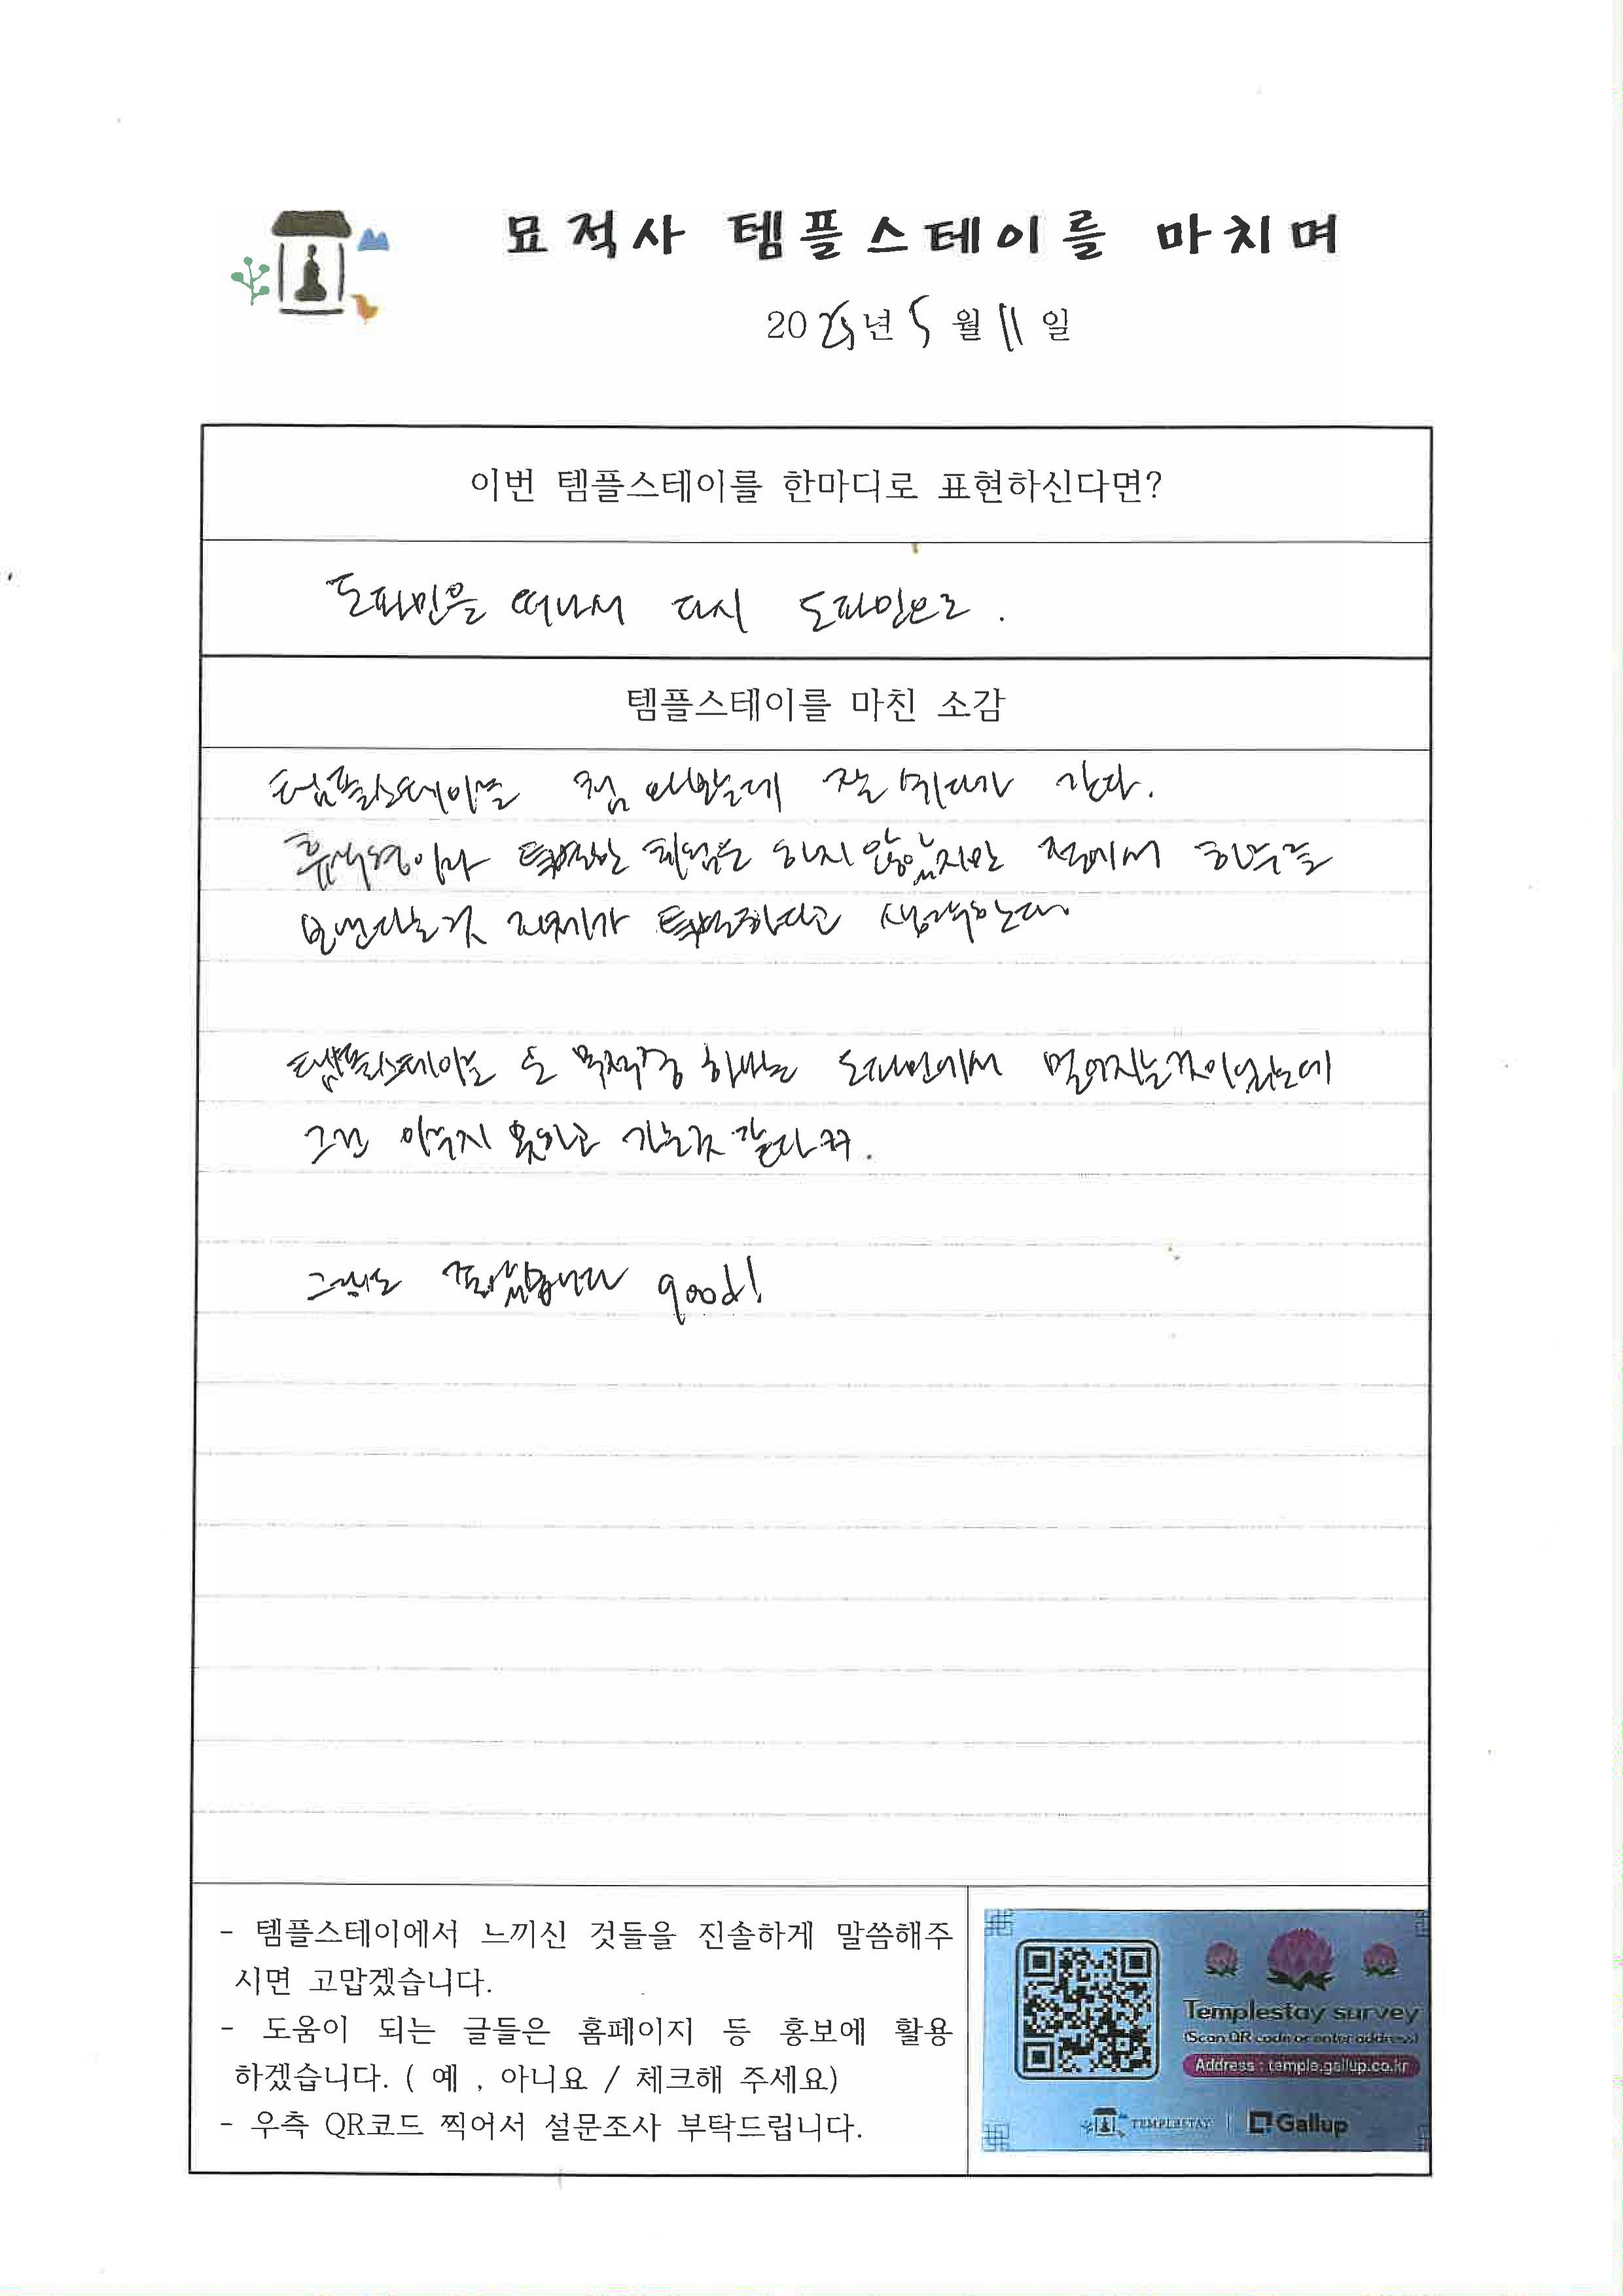 묘적사 템플스테이를 마치며
2025년 5월 11일
이번 템플스테이를 한마디로 표현하신다면?
도파민을 떠나서 다시 도파민으로.
템플스테이를 마친 소감
템플스테이를 첨 와봤는데 잘 쉬다가 간다.
휴식형이라 특별한 체험은 하지 않았지만 절에서 하루를
보낸다는 것 자체가 특별하다고 생각한다.
템플스테이를 온 목적중 하나는 도파민에서 멀어지는것이었는데
그건 이루지 못하고 가는것 같다ㅋㅋ.
그래도 좋았습니다 good!
- 템플스테이에서 느끼신 것들을 진솔하게 말씀해주
시면 고맙겠습니다.
- 도움이 되는 글들은 홈페이지 등 홍보에 활용
하겠습니다. ( 예 , 아니요 / 체크해 주세요)
- 우측 QR코드 찍어서 설문조사 부탁드립니다.
Templestay survey
(Scan QR code or enter address)
Address : temple.gallup.co.kr
TEMPLESTAY Gallup